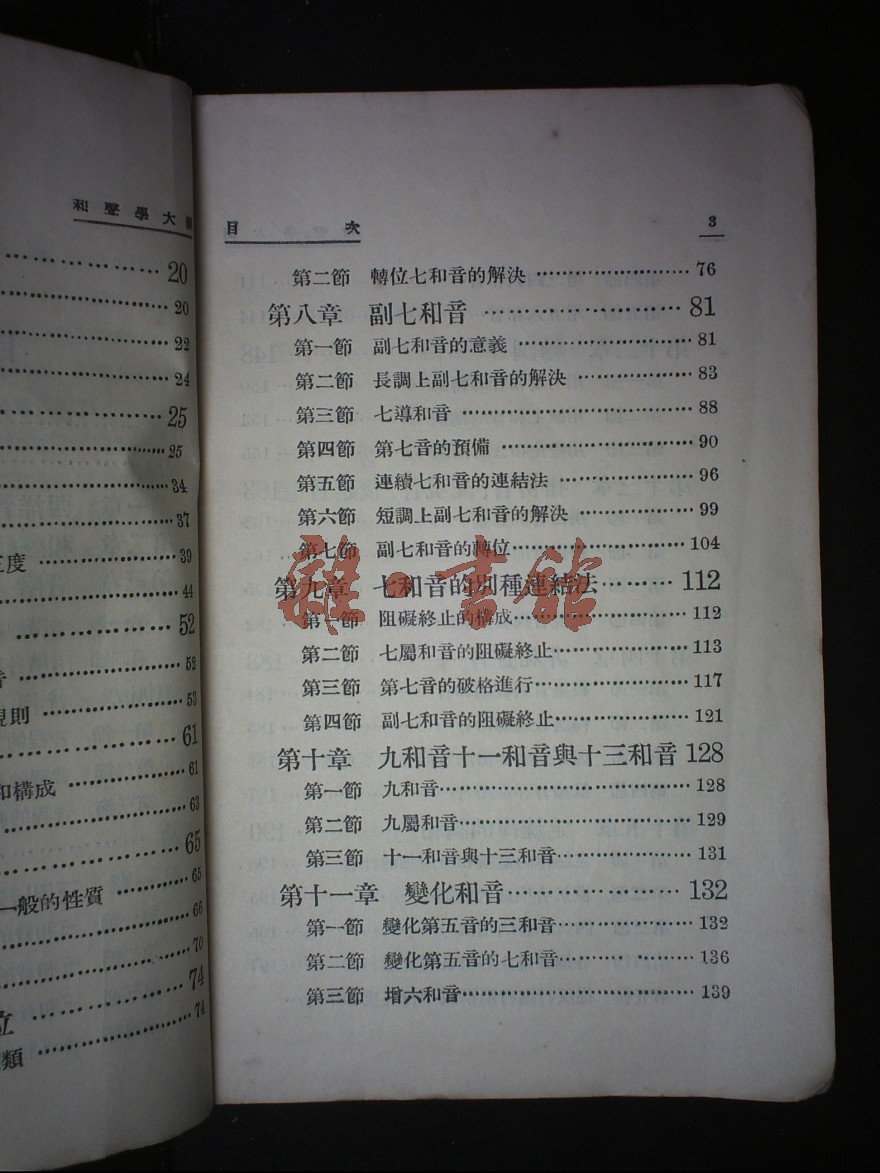 和聲學大
20
20
22
24
25
25
34
37
三度 39
44
52
53
規則 53
61
和構成 61
63
65
一般的性質 65
66
70
位 74
類 74
目次 3
第二節 轉位七和音的解決 76
第八章 副七和音 81
第一節 副七和音的意義 81
第二節 長調上副七和音的解決 83
第三節 七導和音 88
第四節 第七音的預備 90
第五節 連續七和音的連結法 96
第六節 短調上副七和音的解決 99
第七節 副七和音的轉位 104
第九章 七和音的別種連結法 112
雜·書館
第一節 阻礙終止的構成 112
第二節 七屬和音的阻礙終止 113
第三節 第七音的破格進行 117
第四節 副七和音的阻礙終止 121
第十章 九和音十一和音與十三和音 128
第一節 九和音 128
第二節 九屬和音 129
第三節 十一和音與十三和音 131
第十一章 變化和音 132
第一節 變化第五音的三和音 132
第二節 變化第五音的七和音 136
第三節 增六和音 139